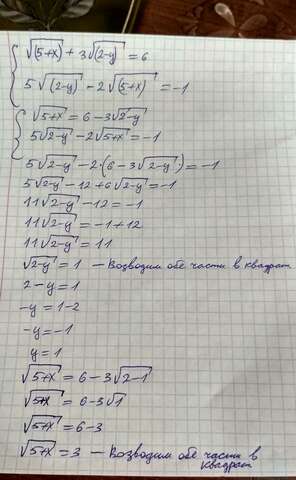 √(5+x) + 3√(2-y) = 6
5√(2-y) - 2√(5+x) = -1
√5+x = 6-3√2-y
5√2-y - 2√5+x = -1
5√2-y - 2·(6-3√2-y) = -1
5√2-y - 12 + 6√2-y = -1
11√2-y - 12 = -1
11√2-y = -1+12
11√2-y = 11
√2-y = 1 — Возводим обе части в квадрат
2-y = 1
-y = 1-2
-y = -1
y = 1
√5+x = 6-3√2-1
√5+x = 6-3√1
√5+x = 6-3
√5+x = 3 — Возводим обе части в
квадрат